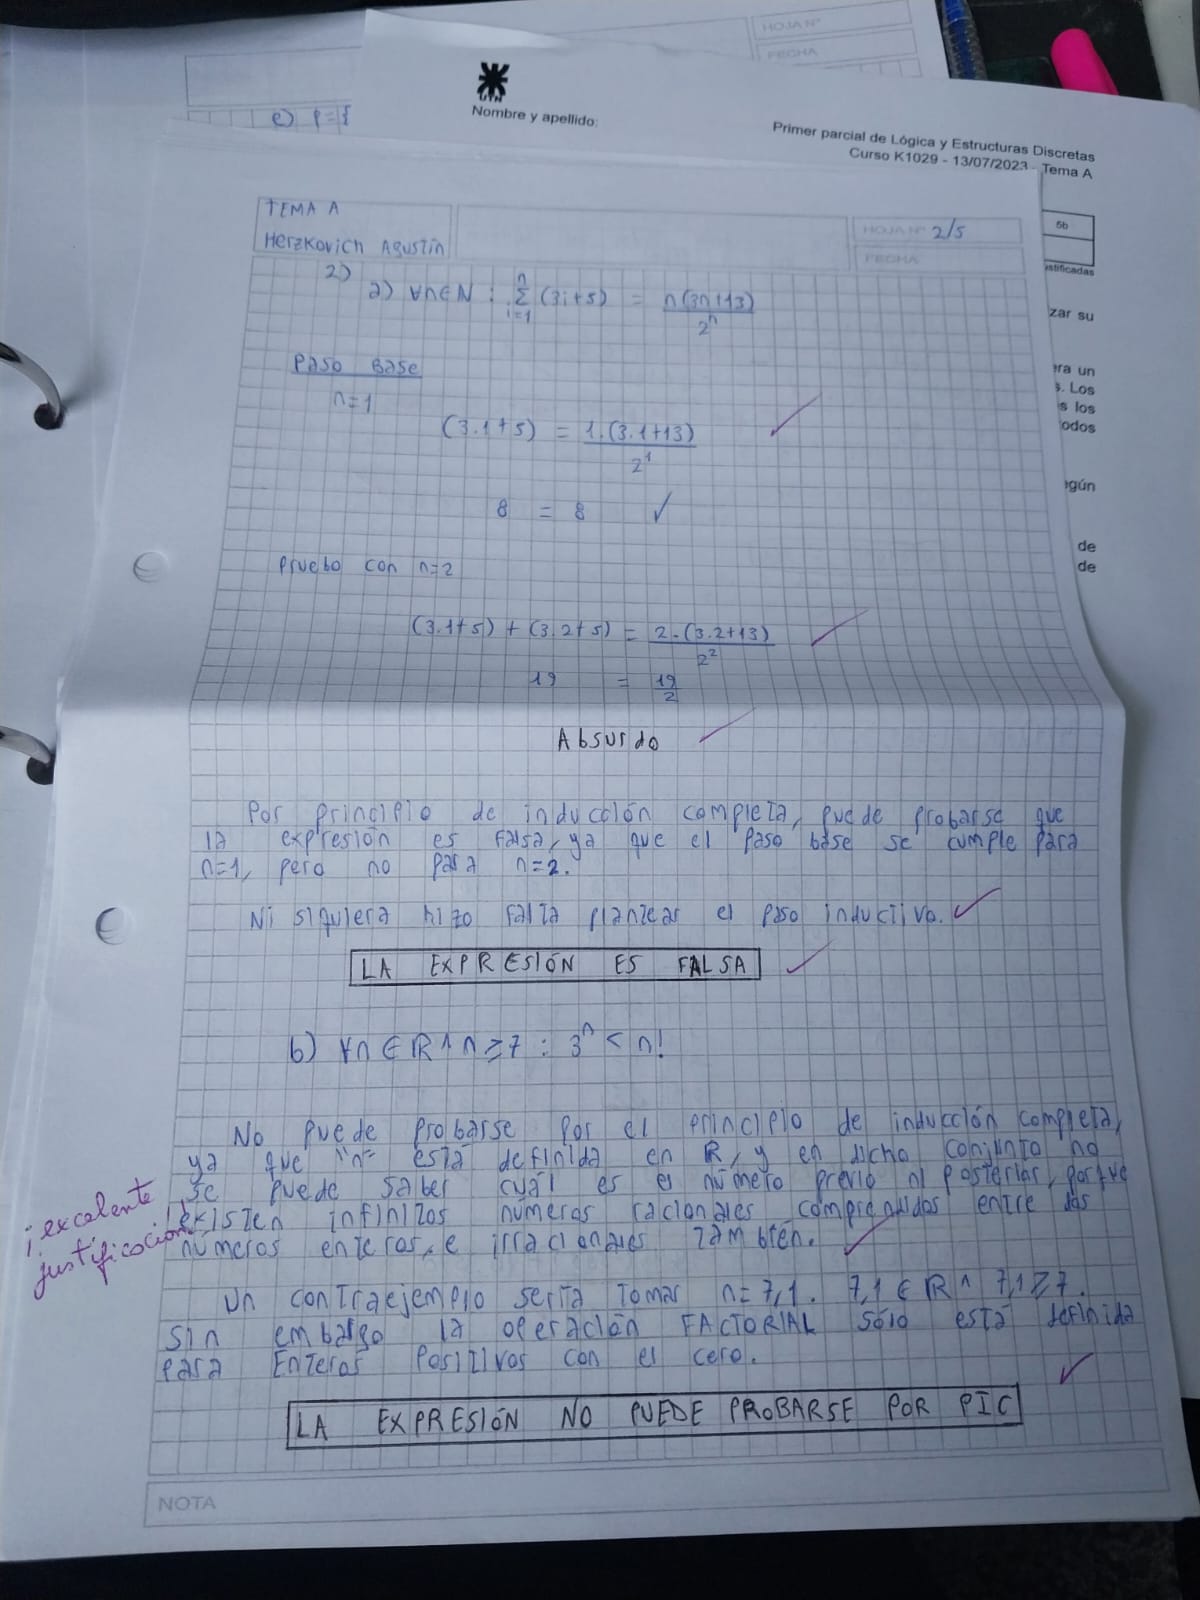 HOJA Nº
FECHA
e) P={
UTN
Nombre y apellido:
Primer parcial de Lógica y Estructuras Discretas
Curso K1029 - 13/07/2023 - Tema A
5b
ustificadas
zar su
era un
s. Los
s los
odos
egún
de
de
TEMA A
Herzkovich Agustín
HOJA Nº 2/5
FECHA
2)
a) ∀n∈N : Σ_{i=1}^{n} (3i+5) = n(3n+13) / 2^n
Paso Base
n=1
(3.1+5) = 1.(3.1+13) / 2^1
8 = 8 ✓
Pruebo con n=2
(3.1+5) + (3.2+5) = 2.(3.2+13) / 2^2
19 = 19/2
Absurdo
Por principio de inducción completa, puede probarse que
la expresión es falsa, ya que el paso base se cumple para
n=1, pero no para n=2.
Ni siquiera hizo falta plantear el paso inductivo.
LA EXPRESIÓN ES FALSA
b) ∀n∈R ∧ n≥7 : 3^n < n!
No puede probarse por el principio de inducción completa,
ya que "n" está definida en R, y en dicho conjunto no
se puede saber cuál es el número previo ni posterior, porque
existen infinitos números racionales comprendidos entre dos
números enteros, e irracionales también.
¡excelente
justificación!
Un contraejemplo sería tomar n=7,1. 7,1∈R ∧ 7,1≥7.
Sin embargo la operación FACTORIAL sólo está definida
para Enteros Positivos con el cero.
LA EXPRESIÓN NO PUEDE PROBARSE POR PIC
NOTA